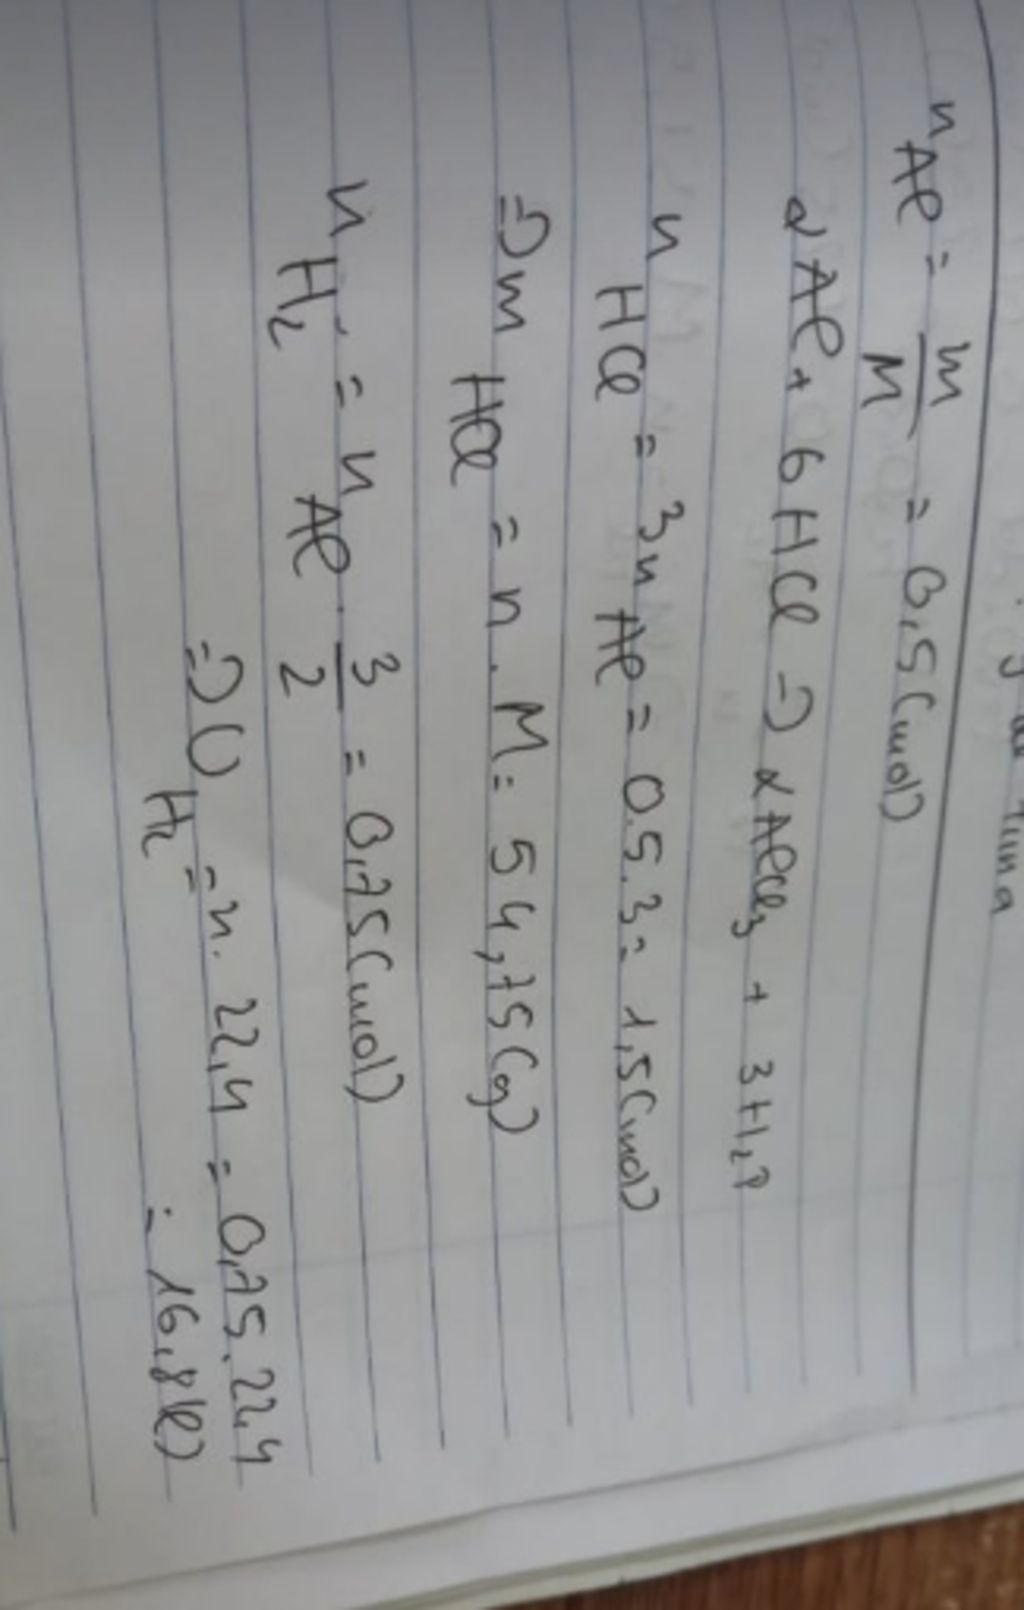 n Al = m/M = 0,5(mol)
2Al + 6HCl => 2AlCl3 + 3H2↑
n HCl = 3n Al = 0.5.3 = 1,5(mol)
=> m HCl = n . M = 54,75(g)
n H2 = n Al . 3/2 = 0,75(mol)
=> V H2 = n. 22,4 = 0,75.22,4
= 16,8(l)